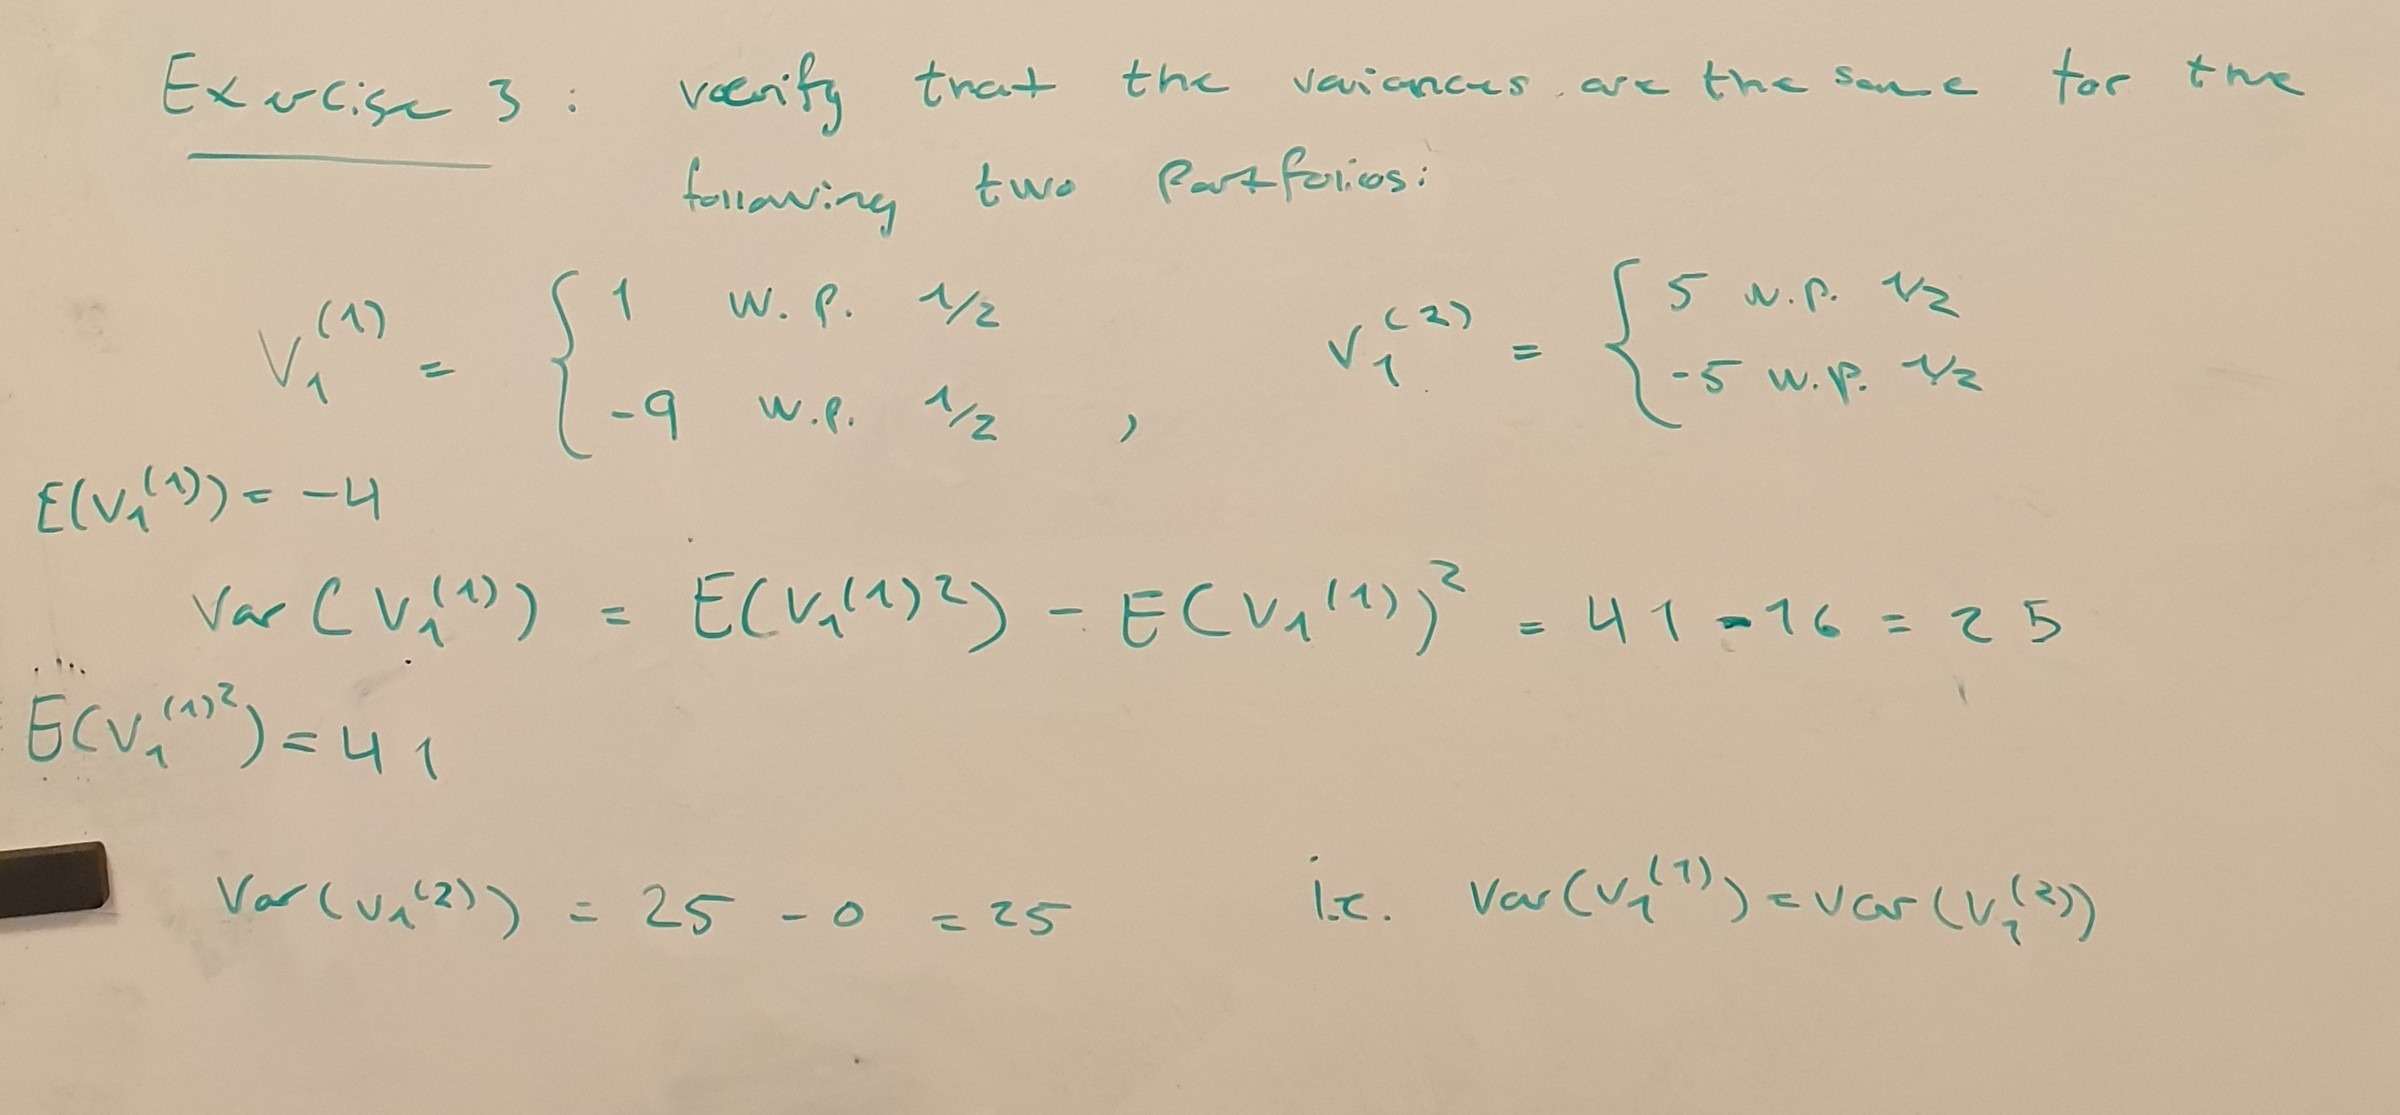 Exercise 3: verify that the variances are the same for the
following two portfolios:
V₁⁽¹⁾ = { 1 w.p. 1/2
-9 w.p. 1/2 ,
V₁⁽²⁾ = { 5 w.p. 1/2
-5 w.p. 1/2
E(V₁⁽¹⁾) = -4
Var(V₁⁽¹⁾) = E(V₁⁽¹⁾²) - E(V₁⁽¹⁾)² = 41 - 16 = 25
E(V₁⁽¹⁾²) = 41
Var(V₁⁽²⁾) = 25 - 0 = 25
i.e. Var(V₁⁽¹⁾) = Var(V₁⁽²⁾)